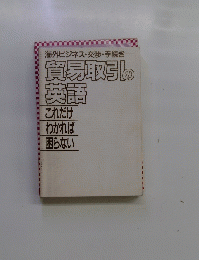 海外ビジネス・交渉・手続き
貿易取引の
英語
これだけ
わかれば
困らない